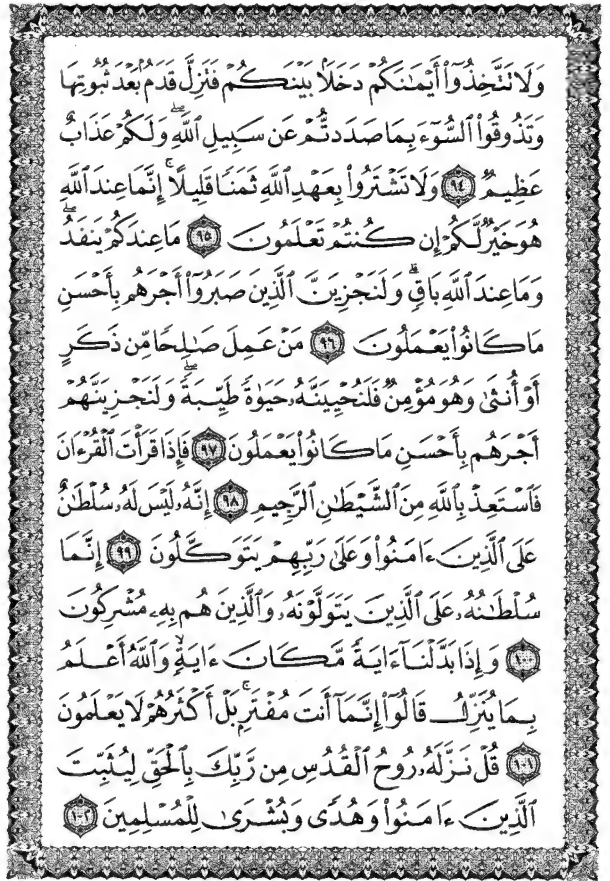 وَلَا تَتَّخِذُوٓا۟ أَيْمَٰنَكُمْ دَخَلًۢا بَيْنَكُمْ فَتَزِلَّ قَدَمٌۢ بَعْدَ ثُبُوتِهَا
وَتَذُوقُوا۟ ٱلسُّوٓءَ بِمَا صَدَدتُّمْ عَن سَبِيلِ ٱللَّهِ ۖ وَلَكُمْ عَذَابٌ
عَظِيمٌ ﴿٩٤﴾ وَلَا تَشْتَرُوا۟ بِعَهْدِ ٱللَّهِ ثَمَنًا قَلِيلًا ۚ إِنَّمَا عِندَ ٱللَّهِ
هُوَ خَيْرٌ لَّكُمْ إِن كُنتُمْ تَعْلَمُونَ ﴿٩٥﴾ مَا عِندَكُمْ يَنفَدُ ۖ
وَمَا عِندَ ٱللَّهِ بَاقٍ ۗ وَلَنَجْزِيَنَّ ٱلَّذِينَ صَبَرُوٓا۟ أَجْرَهُم بِأَحْسَنِ
مَا كَانُوا۟ يَعْمَلُونَ ﴿٩٦﴾ مَنْ عَمِلَ صَٰلِحًا مِّن ذَكَرٍ
أَوْ أُنثَىٰ وَهُوَ مُؤْمِنٌ فَلَنُحْيِيَنَّهُۥ حَيَوٰةً طَيِّبَةً ۖ وَلَنَجْزِيَنَّهُمْ
أَجْرَهُم بِأَحْسَنِ مَا كَانُوا۟ يَعْمَلُونَ ﴿٩٧﴾ فَإِذَا قَرَأْتَ ٱلْقُرْءَانَ
فَٱسْتَعِذْ بِٱللَّهِ مِنَ ٱلشَّيْطَٰنِ ٱلرَّجِيمِ ﴿٩٨﴾ إِنَّهُۥ لَيْسَ لَهُۥ سُلْطَٰنٌ
عَلَى ٱلَّذِينَ ءَامَنُوا۟ وَعَلَىٰ رَبِّهِمْ يَتَوَكَّلُونَ ﴿٩٩﴾ إِنَّمَا
سُلْطَٰنُهُۥ عَلَى ٱلَّذِينَ يَتَوَلَّوْنَهُۥ وَٱلَّذِينَ هُم بِهِۦ مُشْرِكُونَ
﴿١٠٠﴾ وَإِذَا بَدَّلْنَآ ءَايَةً مَّكَانَ ءَايَةٍ ۙ وَٱللَّهُ أَعْلَمُ
بِمَا يُنَزِّلُ قَالُوٓا۟ إِنَّمَآ أَنتَ مُفْتَرٍۭ ۚ بَلْ أَكْثَرُهُمْ لَا يَعْلَمُونَ
﴿١٠١﴾ قُلْ نَزَّلَهُۥ رُوحُ ٱلْقُدُسِ مِن رَّبِّكَ بِٱلْحَقِّ لِيُثَبِّتَ
ٱلَّذِينَ ءَامَنُوا۟ وَهُدًى وَبُشْرَىٰ لِلْمُسْلِمِينَ ﴿١٠٢﴾